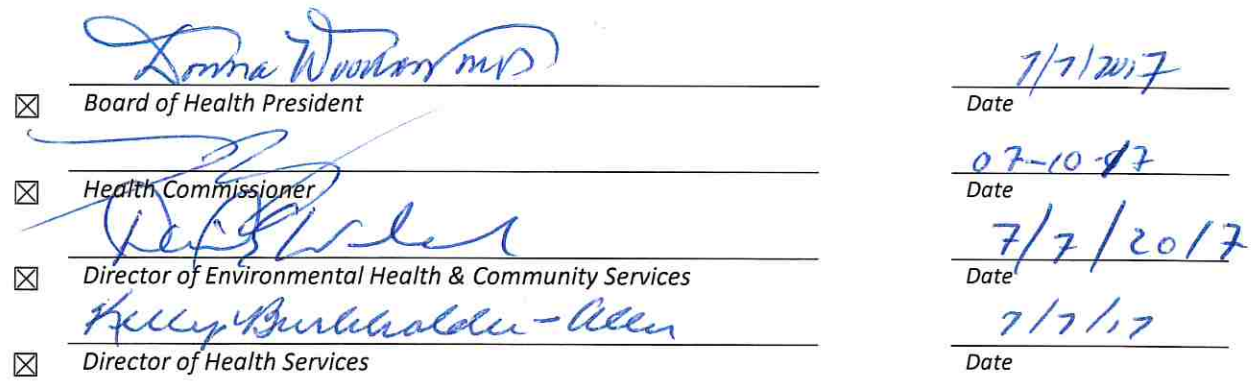 Donna Woodson MD 7/7/2017
☒ Board of Health President Date
07-10-17
☒ Health Commissioner Date
7/7/2017
☒ Director of Environmental Health & Community Services Date
Kelly Burkholder-Allen 7/7/17
☒ Director of Health Services Date